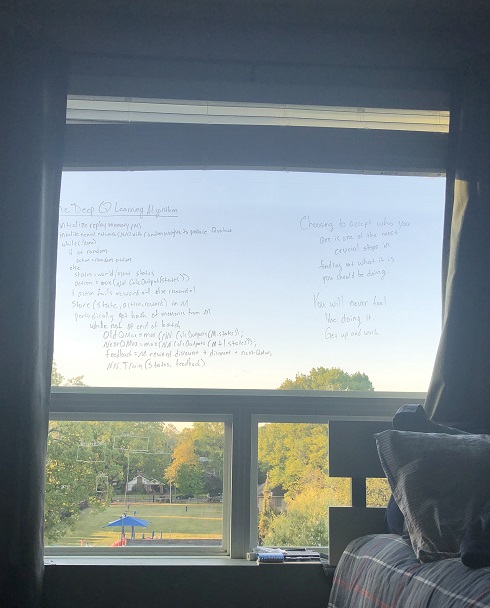 The Deep Q Learning Algorithm
initialize replay memory
initialize neural network with random weights to produce Q values
while (true)
if on random
action = random action
else
states = world / new states
action = max (NN. CalcOutputs (states))
if action fails reward = else reward = 1
Store (state, action, reward) in M
periodically get batch of memories from M
while not at end of batch
Old Q Max = max (NN. CalcOutputs (M. states));
New Q Max = max (NN. CalcOutputs (M+1. states));
feedback = M. reward discount +
NN. Train (states, feedback)
Choosing to accept who you
are is one of the most
crucial steps in
finding out what it is
you should be doing.
You will never feel
like doing it.
Get up and work